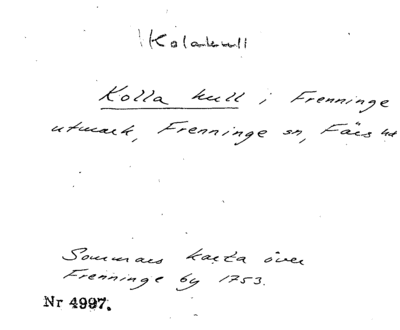 Kolakull
Kolla kull i Frenninge
utmark, Frenninge sn, Färs hd
Sommars karta över
Frenninge by 1753.
Nr 4997.